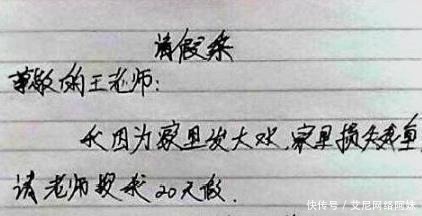 请假条
尊敬的王老师:
我因为家里发大水,家里损失惨重
请老师批我20天假.
快传号/艾尼网络阿妹